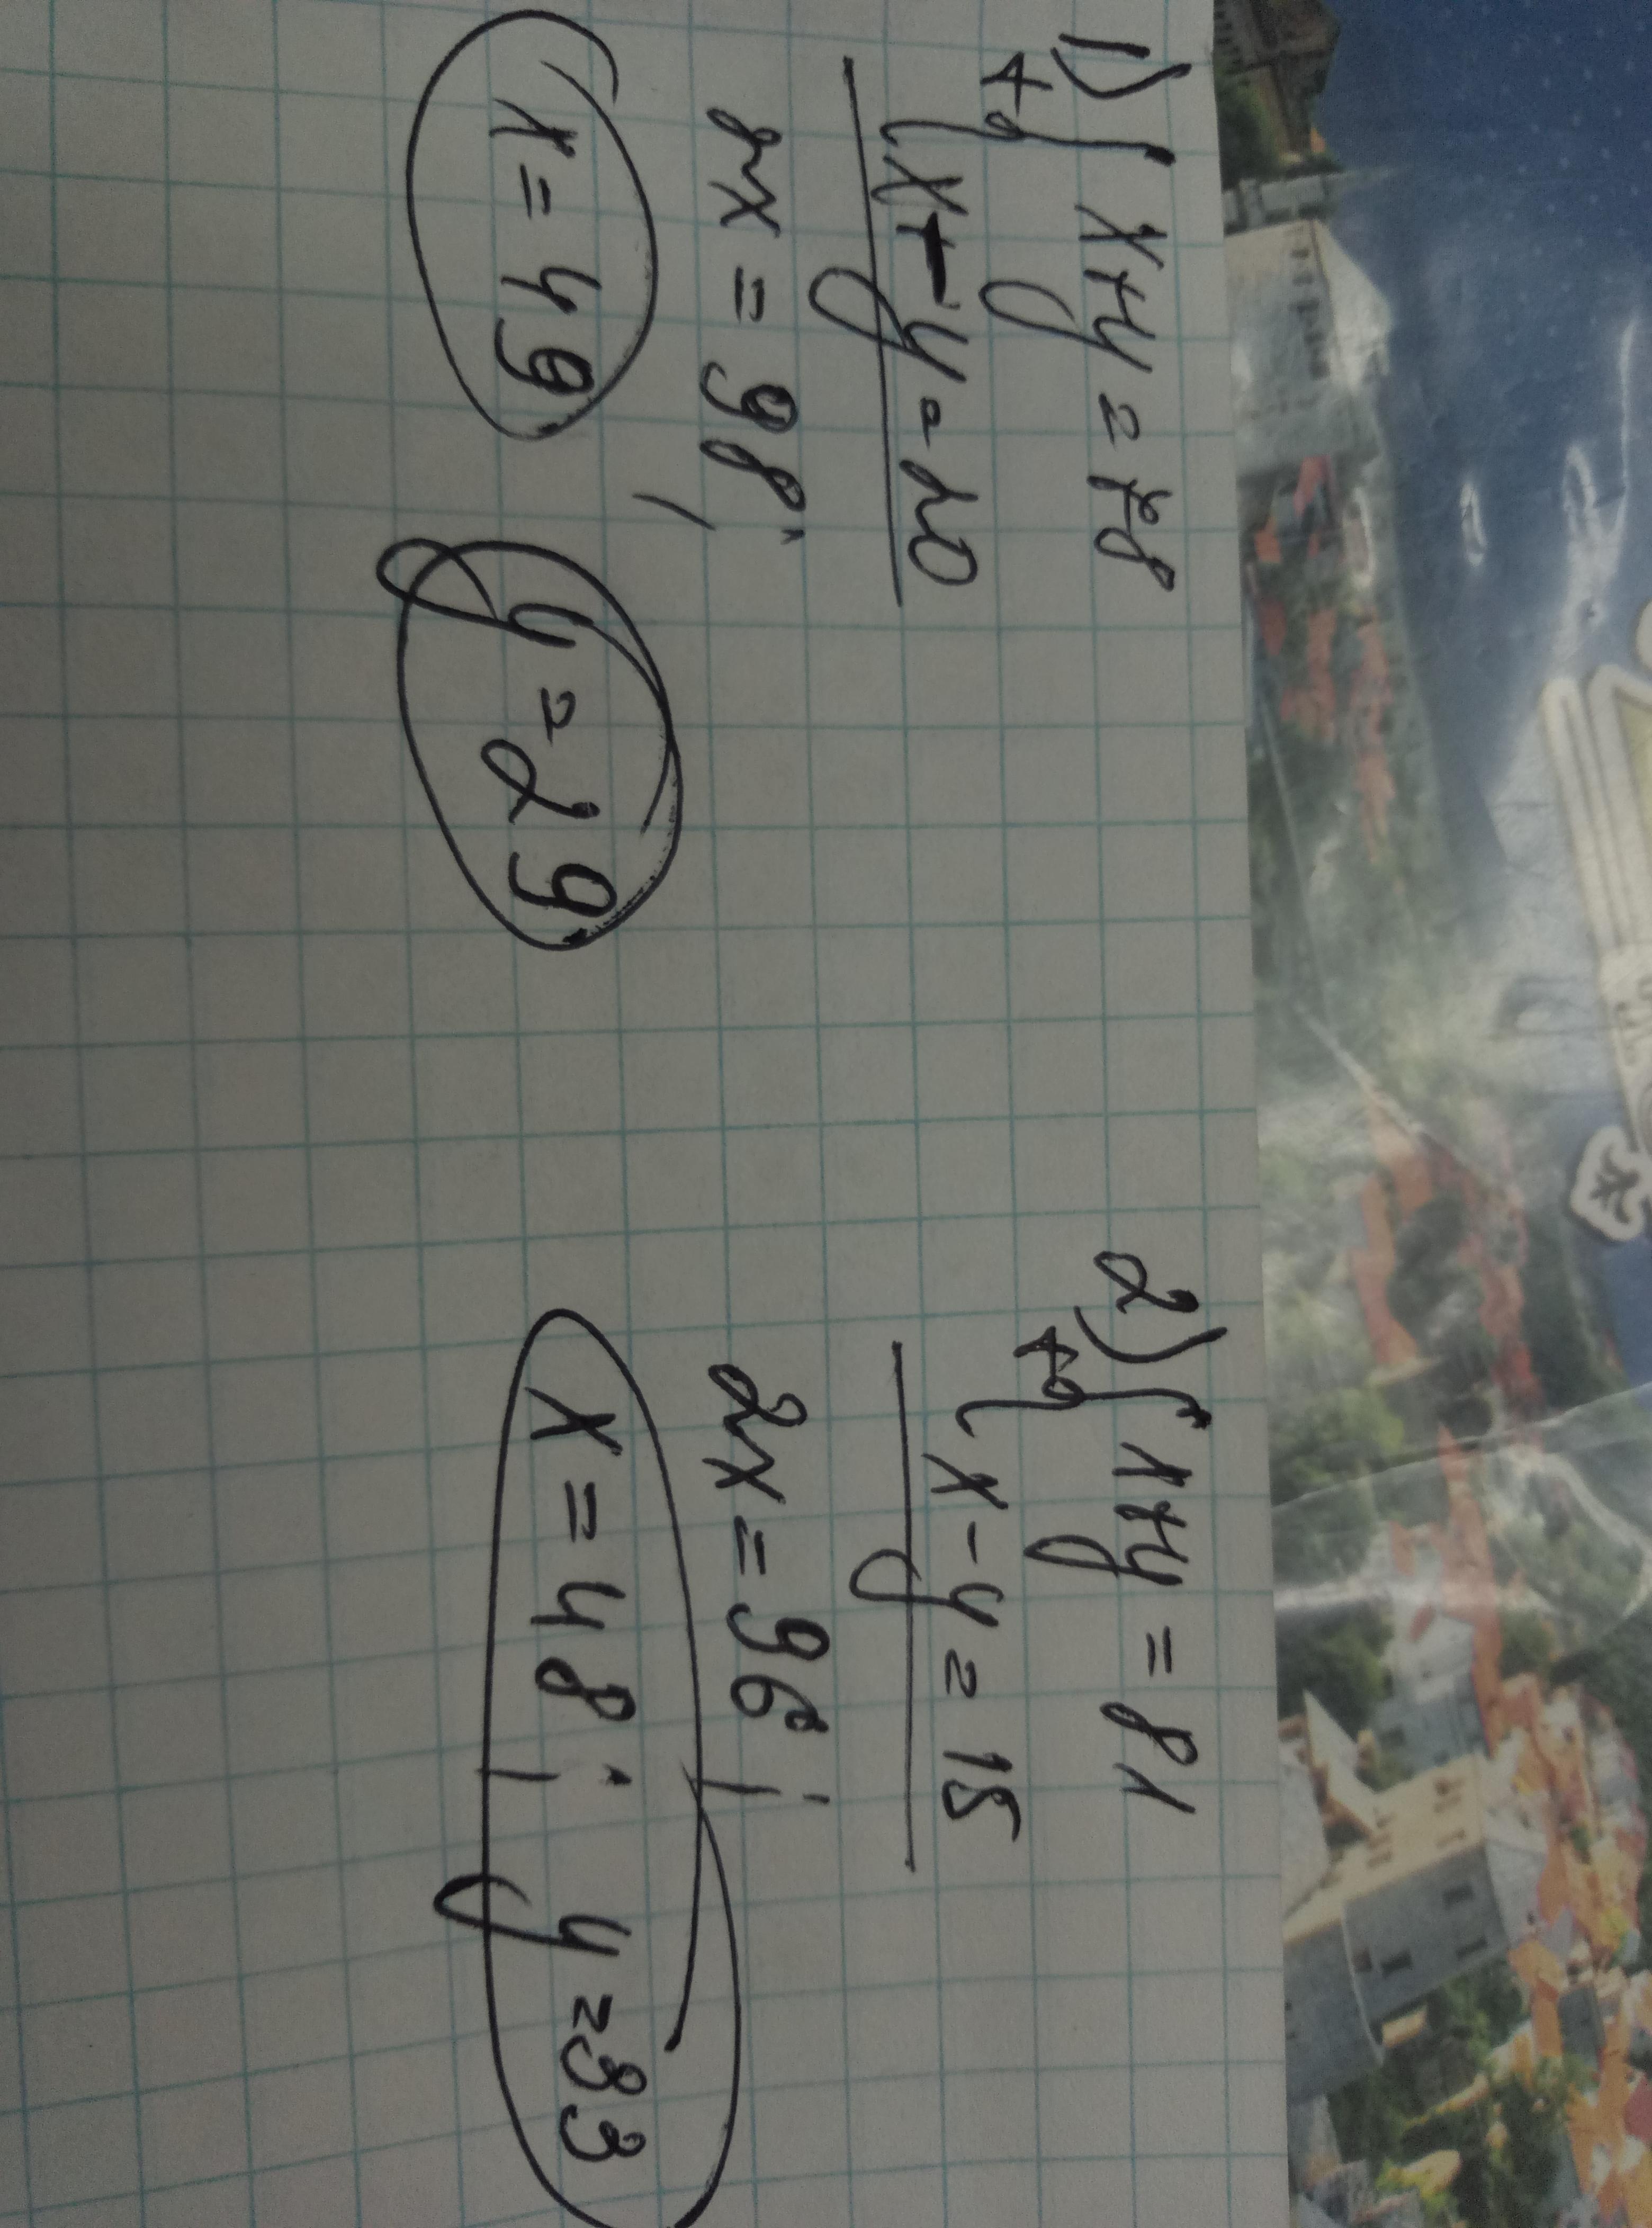 1) { x+y=78
+ { x-y=20
2x=98;
x=49
y=29
2) { x+y=81
+ { x-y=15
2x=96;
x=48; y=33